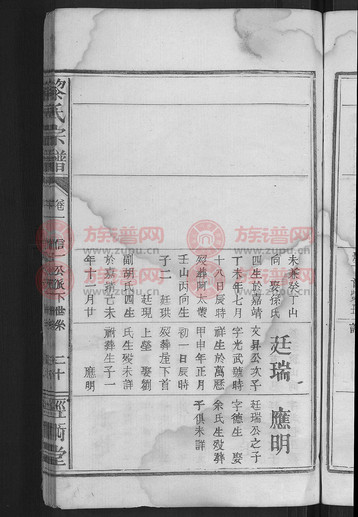 黎氏宗譜
卷一
信一公派下世系
二十
經術堂
未葬癸丁山
向 娶孫氏
四生於嘉靖
丁未年七月
十八日辰時
歿葬阿太鰲
壬山丙向生
子二 廷珙
廷現
繼胡氏四生
於嘉靖己未
年十二月廿
廷瑞
文昇公次子
字光武號時
祥生於萬曆
甲申年正月
初一日辰時
歿葬屋下首
上壟 娶劉
氏生歿未詳
祔葬生子一
應明
應明
廷瑞公之子
字德生 娶
余氏生歿葬
子俱未詳
族谱网
www.zupu.cn